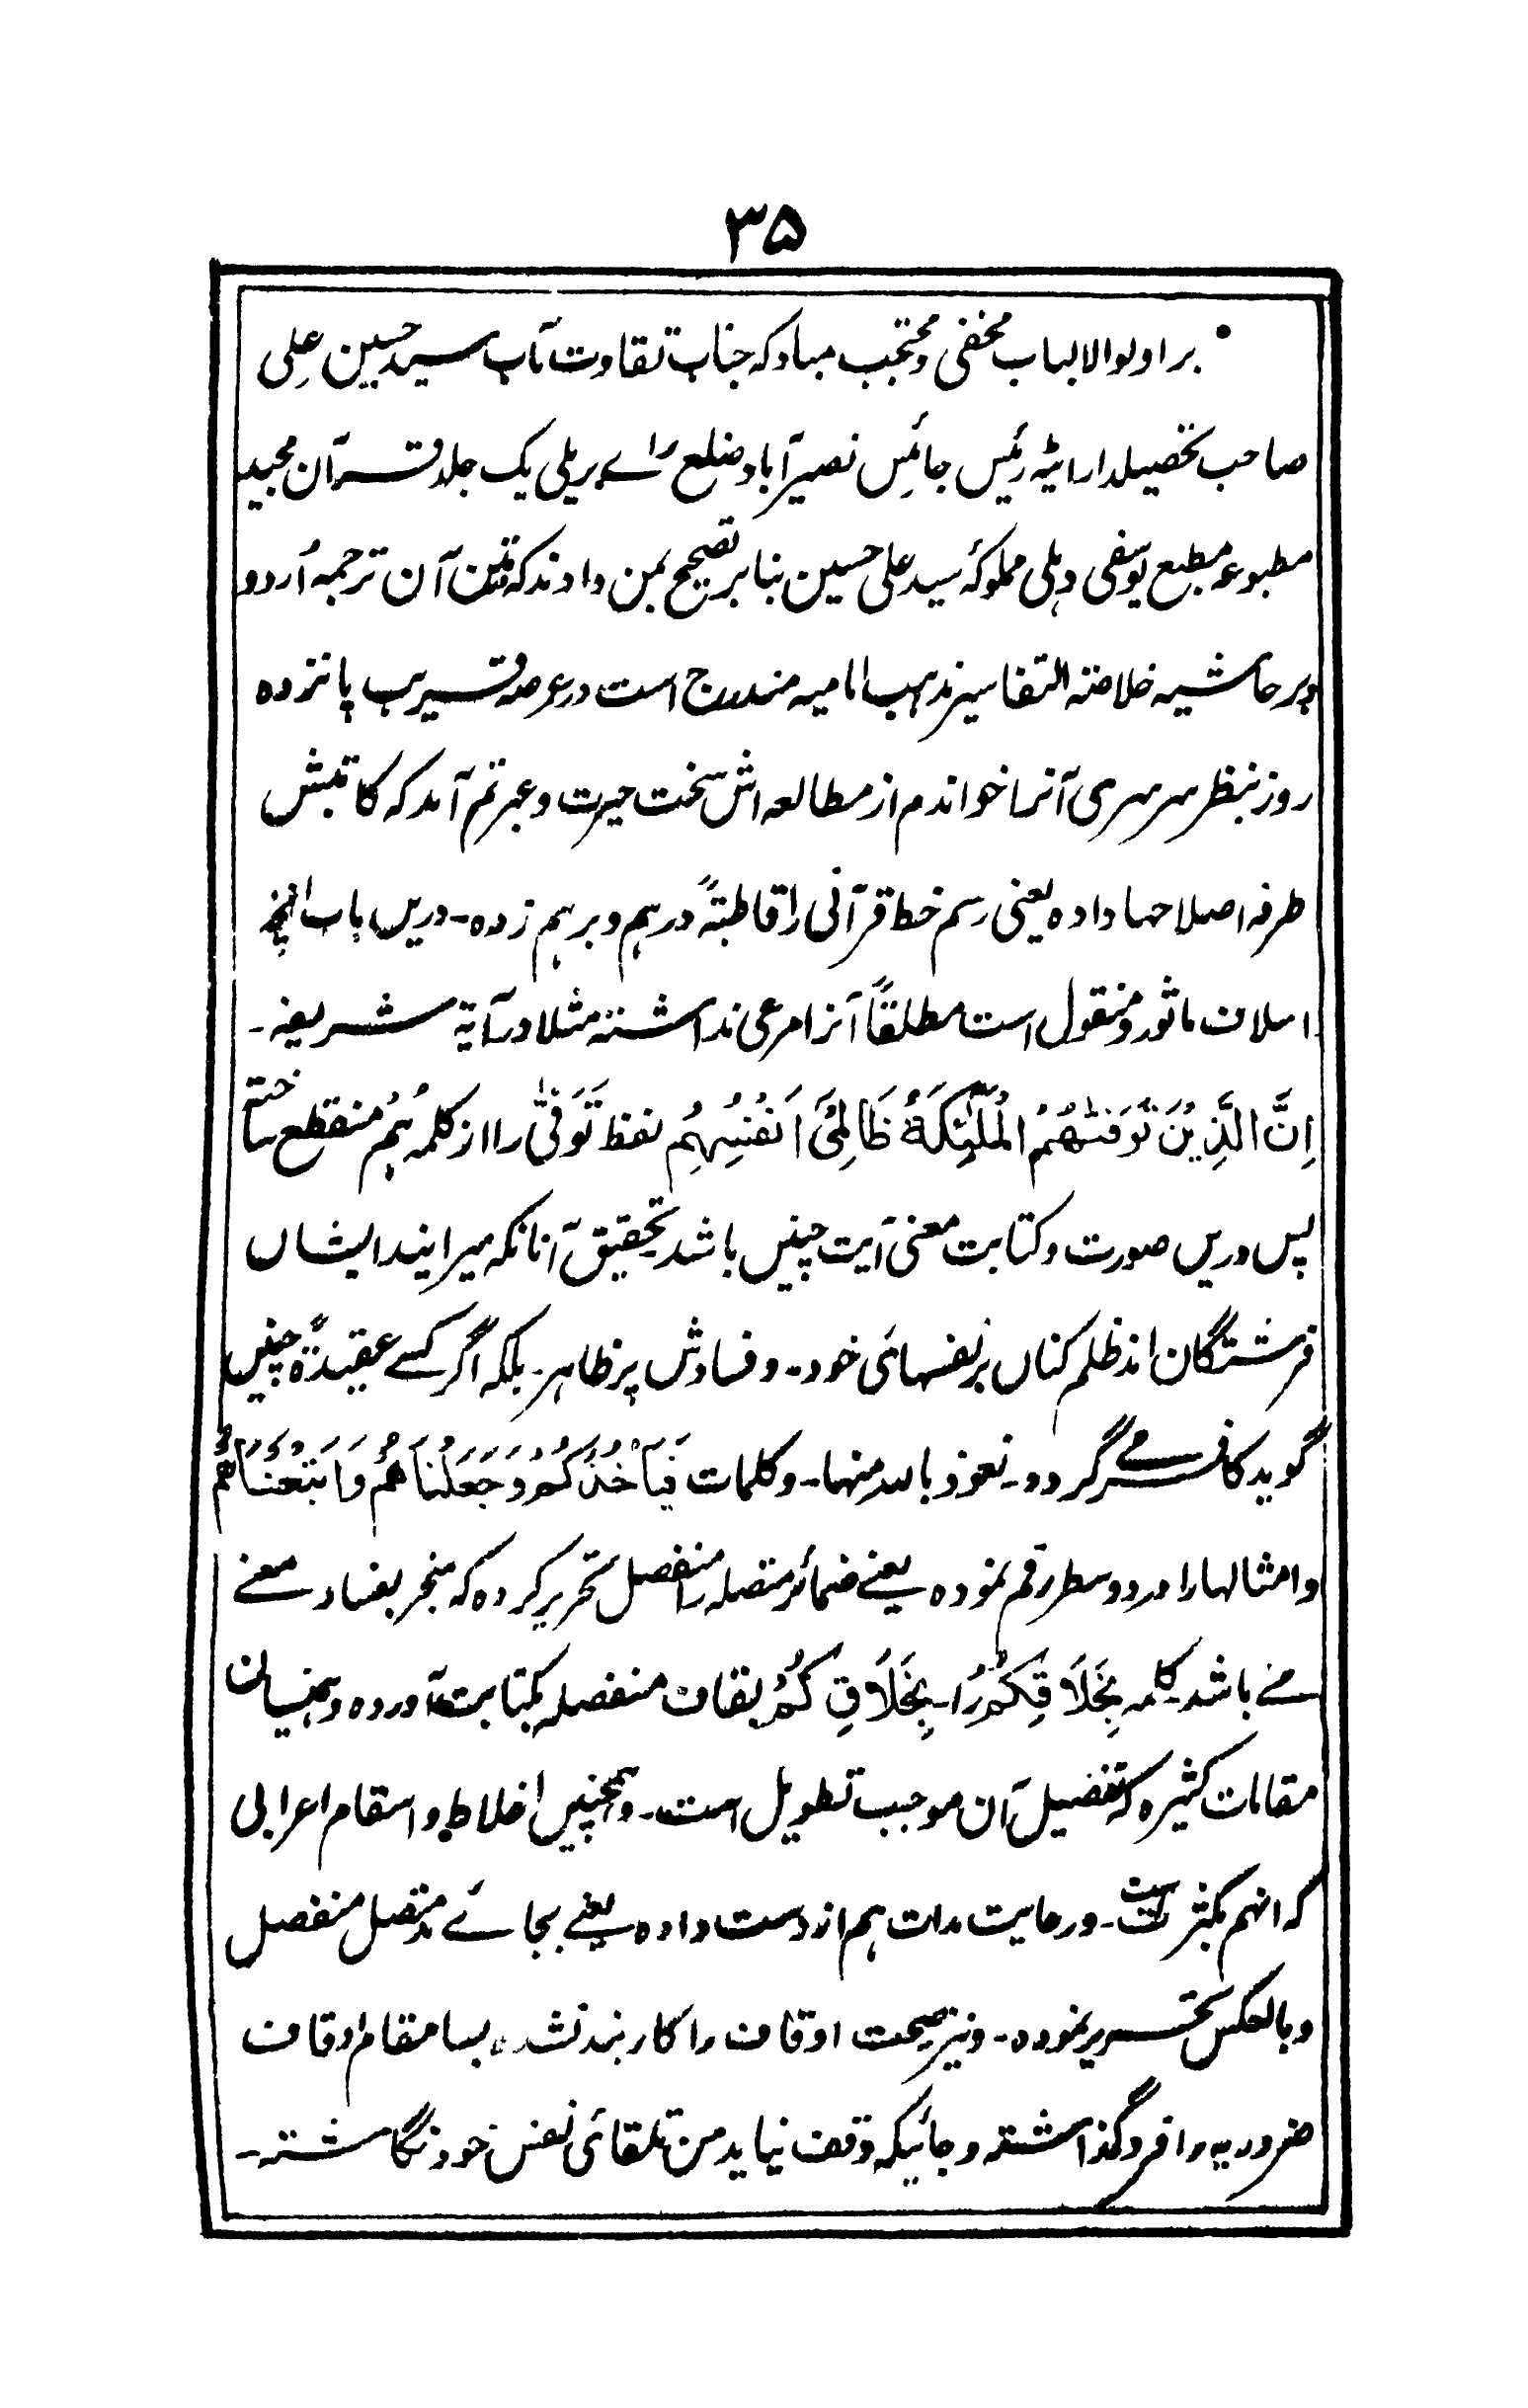 ۳۵
براولوالالباب مخفی و محتجب مبادکہ جناب تقاوت مآب سید حسین علی
صاحب تحصیلدار اٹیہ رئیس جائس نصیرآباد ضلع راے بریلی یک جلد قرآن مجید
مطبوعہ مطبع یوسفی دہلی مملوکۂ سید علی حسین بنا بر تصحیح بمن دادند کہ متن آن ترجمہ اُردو
و بر حاشیہ خلاصۃ التفاسیر مذہب امامیہ مندرج است در عرصہ قریب پانزدہ
روز بنظر سرسری آنرا خواندم از مطالعہ اش سخت حیرت و عبرتم آمد کہ کاتبش
طرفہ اصلاحہا دادہ یعنی رسم خط قرآنی را قاطبۃً درہم و برہم زدہ۔ دریں باب انچہ
اسلاف ماثور و منقول است مطلقاً آنرا مرعی نداشتہ مثلا در آیۃ شریفہ۔
اِنَّ الَّذِيْنَ تَوَفّٰىهُمُ الْمَلٰٓئِكَةُ ظَالِمِیْٓ اَنْفُسِہِمْ لفظ تَوَفّٰی را از کلمہ ہُمْ منقطع ساختہ
پس دریں صورت و کتابت معنی آیت چنیں باشد تحقیق آنانکہ میرانید ایشاں
فرشتگان اند ظلم کناں بر نفسہائی خود۔ و فسادش پر ظاہر۔ بلکہ اگر کسے عقیدۃً چنیں
گوید کافر مے گردد۔ نعوذ باللہ منہا۔ و کلمات فَيَأْخُذَكُمْ وَجَعَلْنَاهُمْ وَاَتْبَعْنَاهُمْ
و امثالہا را در دو سطر رقم نمودہ یعنے ضمائر متصلہ را منفصل تحریر کردہ کہ منجر بفساد معنے
مے باشد۔ کلمہ بِخَلَاقِكُمْ را۔ بِخَلَاقِ كُمْ بقاف منفصلہ بکتابت آوردہ و ہمنیسان
مقامات کثیرہ کہ تفصیل آن موجب تطویل است۔ و ہمچنیں اغلاط و اسقام اعرابی
کہ انہم بکثرت ست۔ و رعایت مدات ہم از دست دادہ یعنے بجائے مد متصل منفصل
و بالعکس تحریر نمودہ۔ و نیز صحت اوقاف را کار بند نشدہ بسا مقام اوقاف
ضروریہ را فروگذاشتہ و جائیکہ وقف نیاید من تلقائی نفس خود نگاشتہ۔